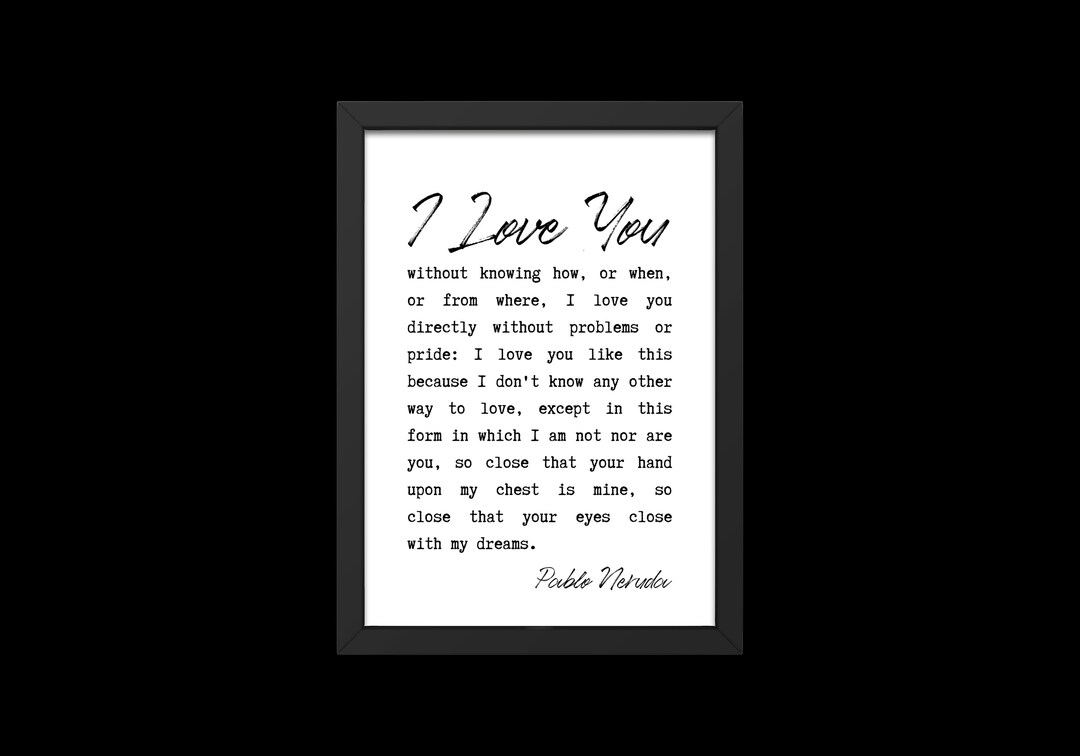 I Love You
without knowing how, or when,
or from where, I love you
directly without problems or
pride: I love you like this
because I don't know any other
way to love, except in this
form in which I am not nor are
you, so close that your hand
upon my chest is mine, so
close that your eyes close
with my dreams.
Pablo Neruda